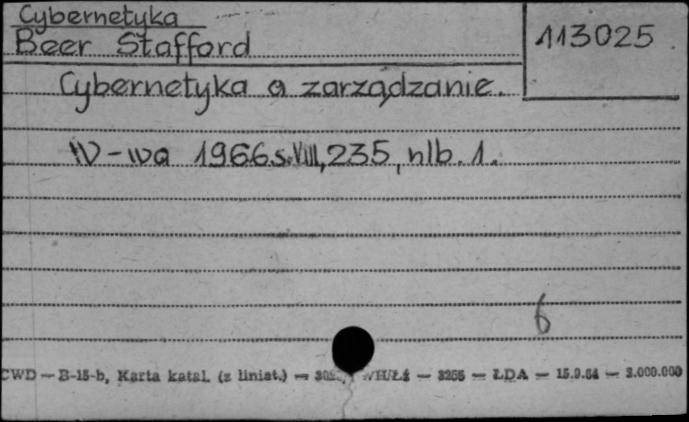 Cybernetyka
Beer Stafford
113025
Cybernetyka a zarządzanie.
W-wa 1966 s. VIII, 235, nlb. 1.
6
CWD — B-15-b, Karta katal. (z liniat.) — — 3255 — ŁDA — 15.9.64 — 3.000.000